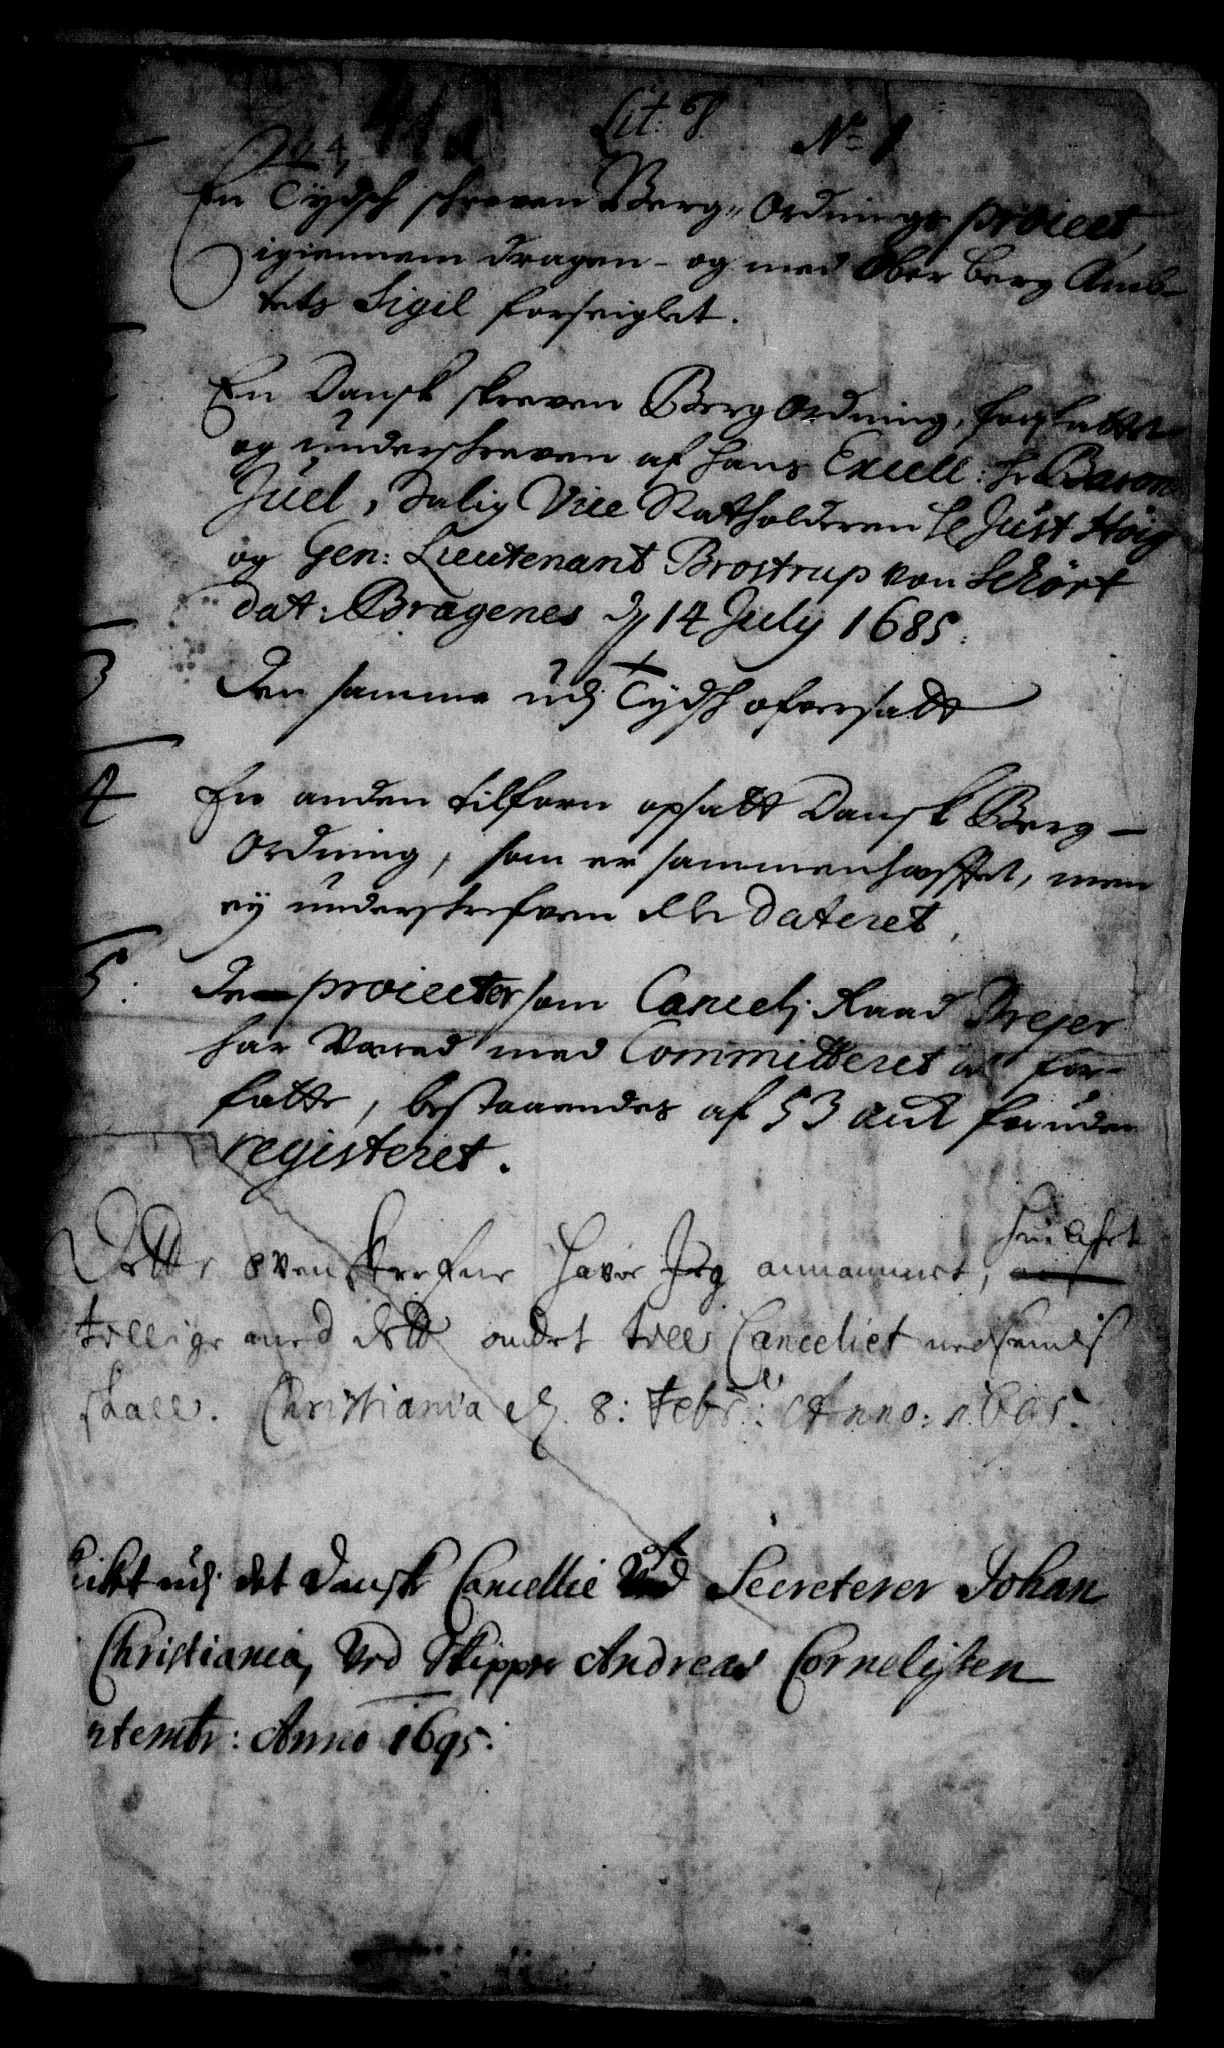 Lit: No 1
En Tydsch schreven Berg-Ordnings proiect,
igiennem dragen - og med Ober Berg Amb-
tets Sigil forseiglet.
En Dansk skreven Berg Ordning, forfattet
og underschreven af hans Excell: Hr Baron
Juel, Salig Vice Statholderen Hr Just Høig
og Gen: Lieutenant Brostrup von Schört
dat: Bragenes d 14 July 1685.
3 Den samme udj Tydsch ofversatt
4 En anden tilforn opsatt Dansk Berg-
Ordning, som er sammenhefftet, men
ej underskrefven eller dateret,
5: De proiecter som Cancelj Raad Dreyer
har Vered med Committeret at for-
fatte, bestaaendes af 53 art foruden
registeret.
huilchet
Dette ovenskrefne haver Jeg annammet,
tillige med dette andet till Canceliet nedsendis
skall. Christiania d. 8: Febr: Anno: 1695.
udj det Danske Cancellie Secreterer Johan
Christiania, Ved Skipper Andreas Cornelissen
temb: Anno 1695.